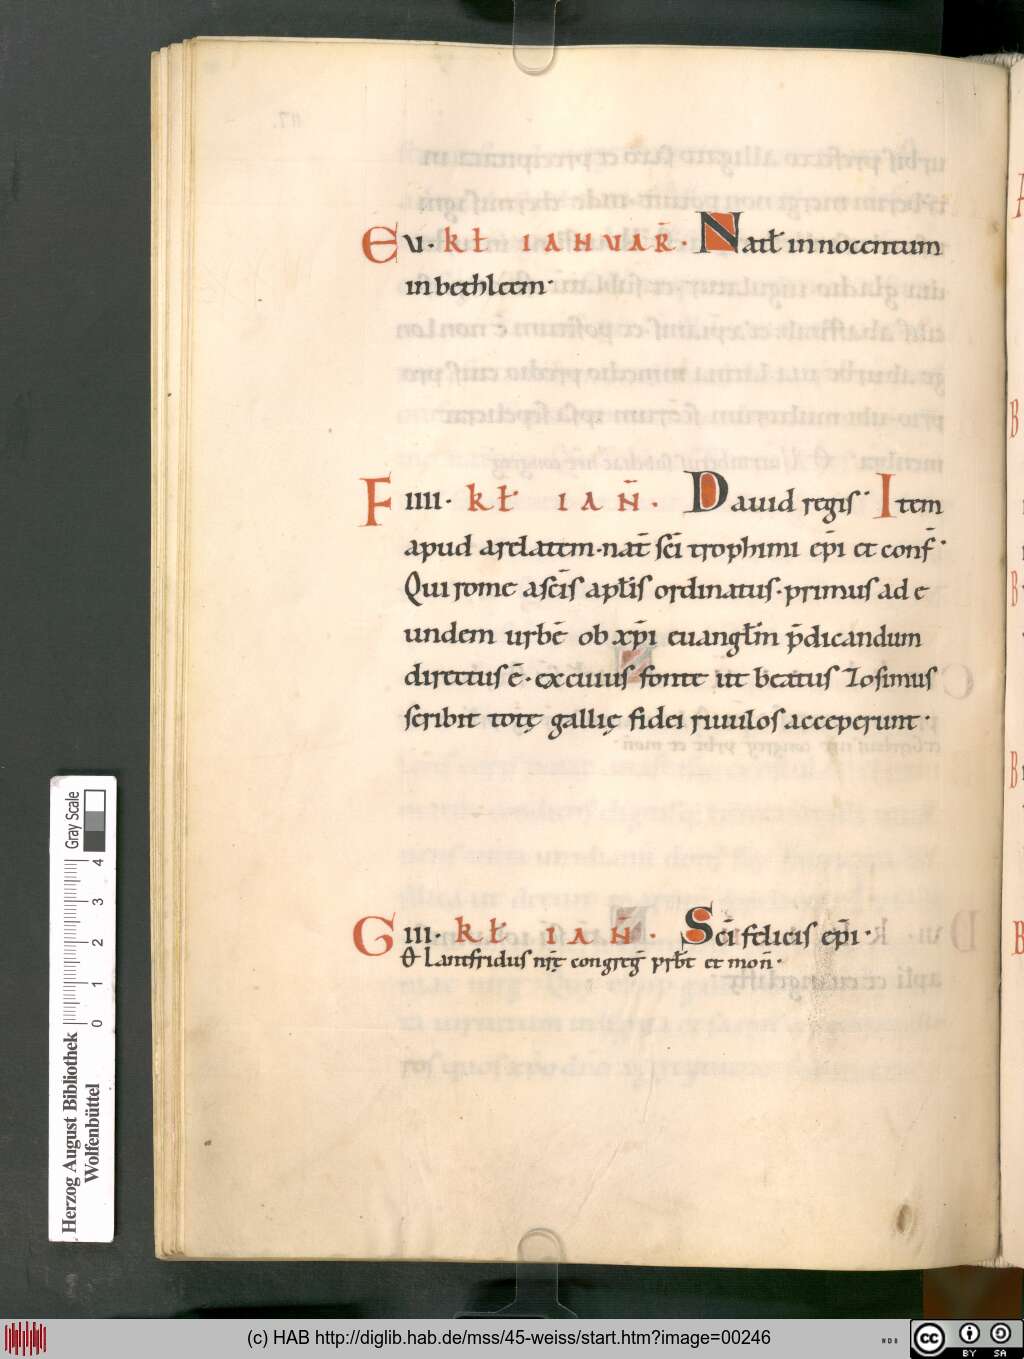 E v· kł IANUAR̄· Natł innocentum
in bethleem·
F IIII· kł IAN̄· Dauid regis· Item
apud arelatem·nat̄ sc̄i trophimi ep̄i et conf̄·
Qui rome a sc̄is apłis ordinatus·primus ad e
undem urbē ob xp̄i euangłm p̄dicandum
directus ē·ex cuius fonte ut beatus Zosimus
scribit totę gallię fidei riuulos acceperunt·
G III· kł IAN̄· Sc̄i felicis ep̄i·
Lantfridus nr̄ę congreg̅ prb̄t et mon̄·
Herzog August Bibliothek
Wolfenbüttel
0 1 2 3 4
Gray Scale
(c) HAB http://diglib.hab.de/mss/45-weiss/start.htm?image=00246
cc BY SA